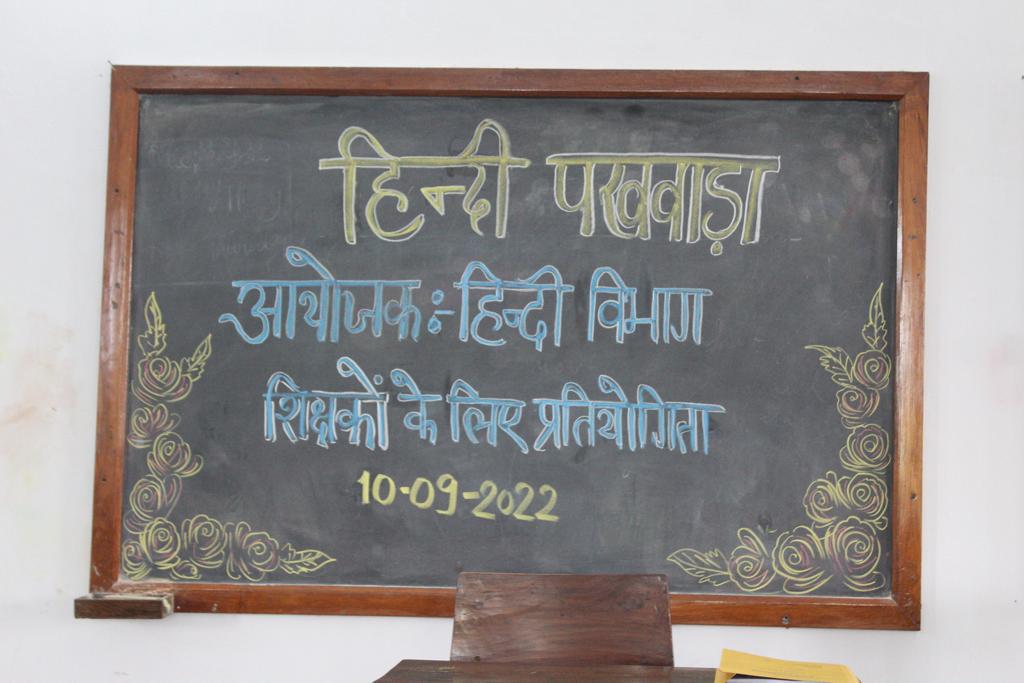 हिन्दी पखवाड़ा
आयोजक:- हिन्दी विभाग
शिक्षकों के लिए प्रतियोगिता
10-09-2022